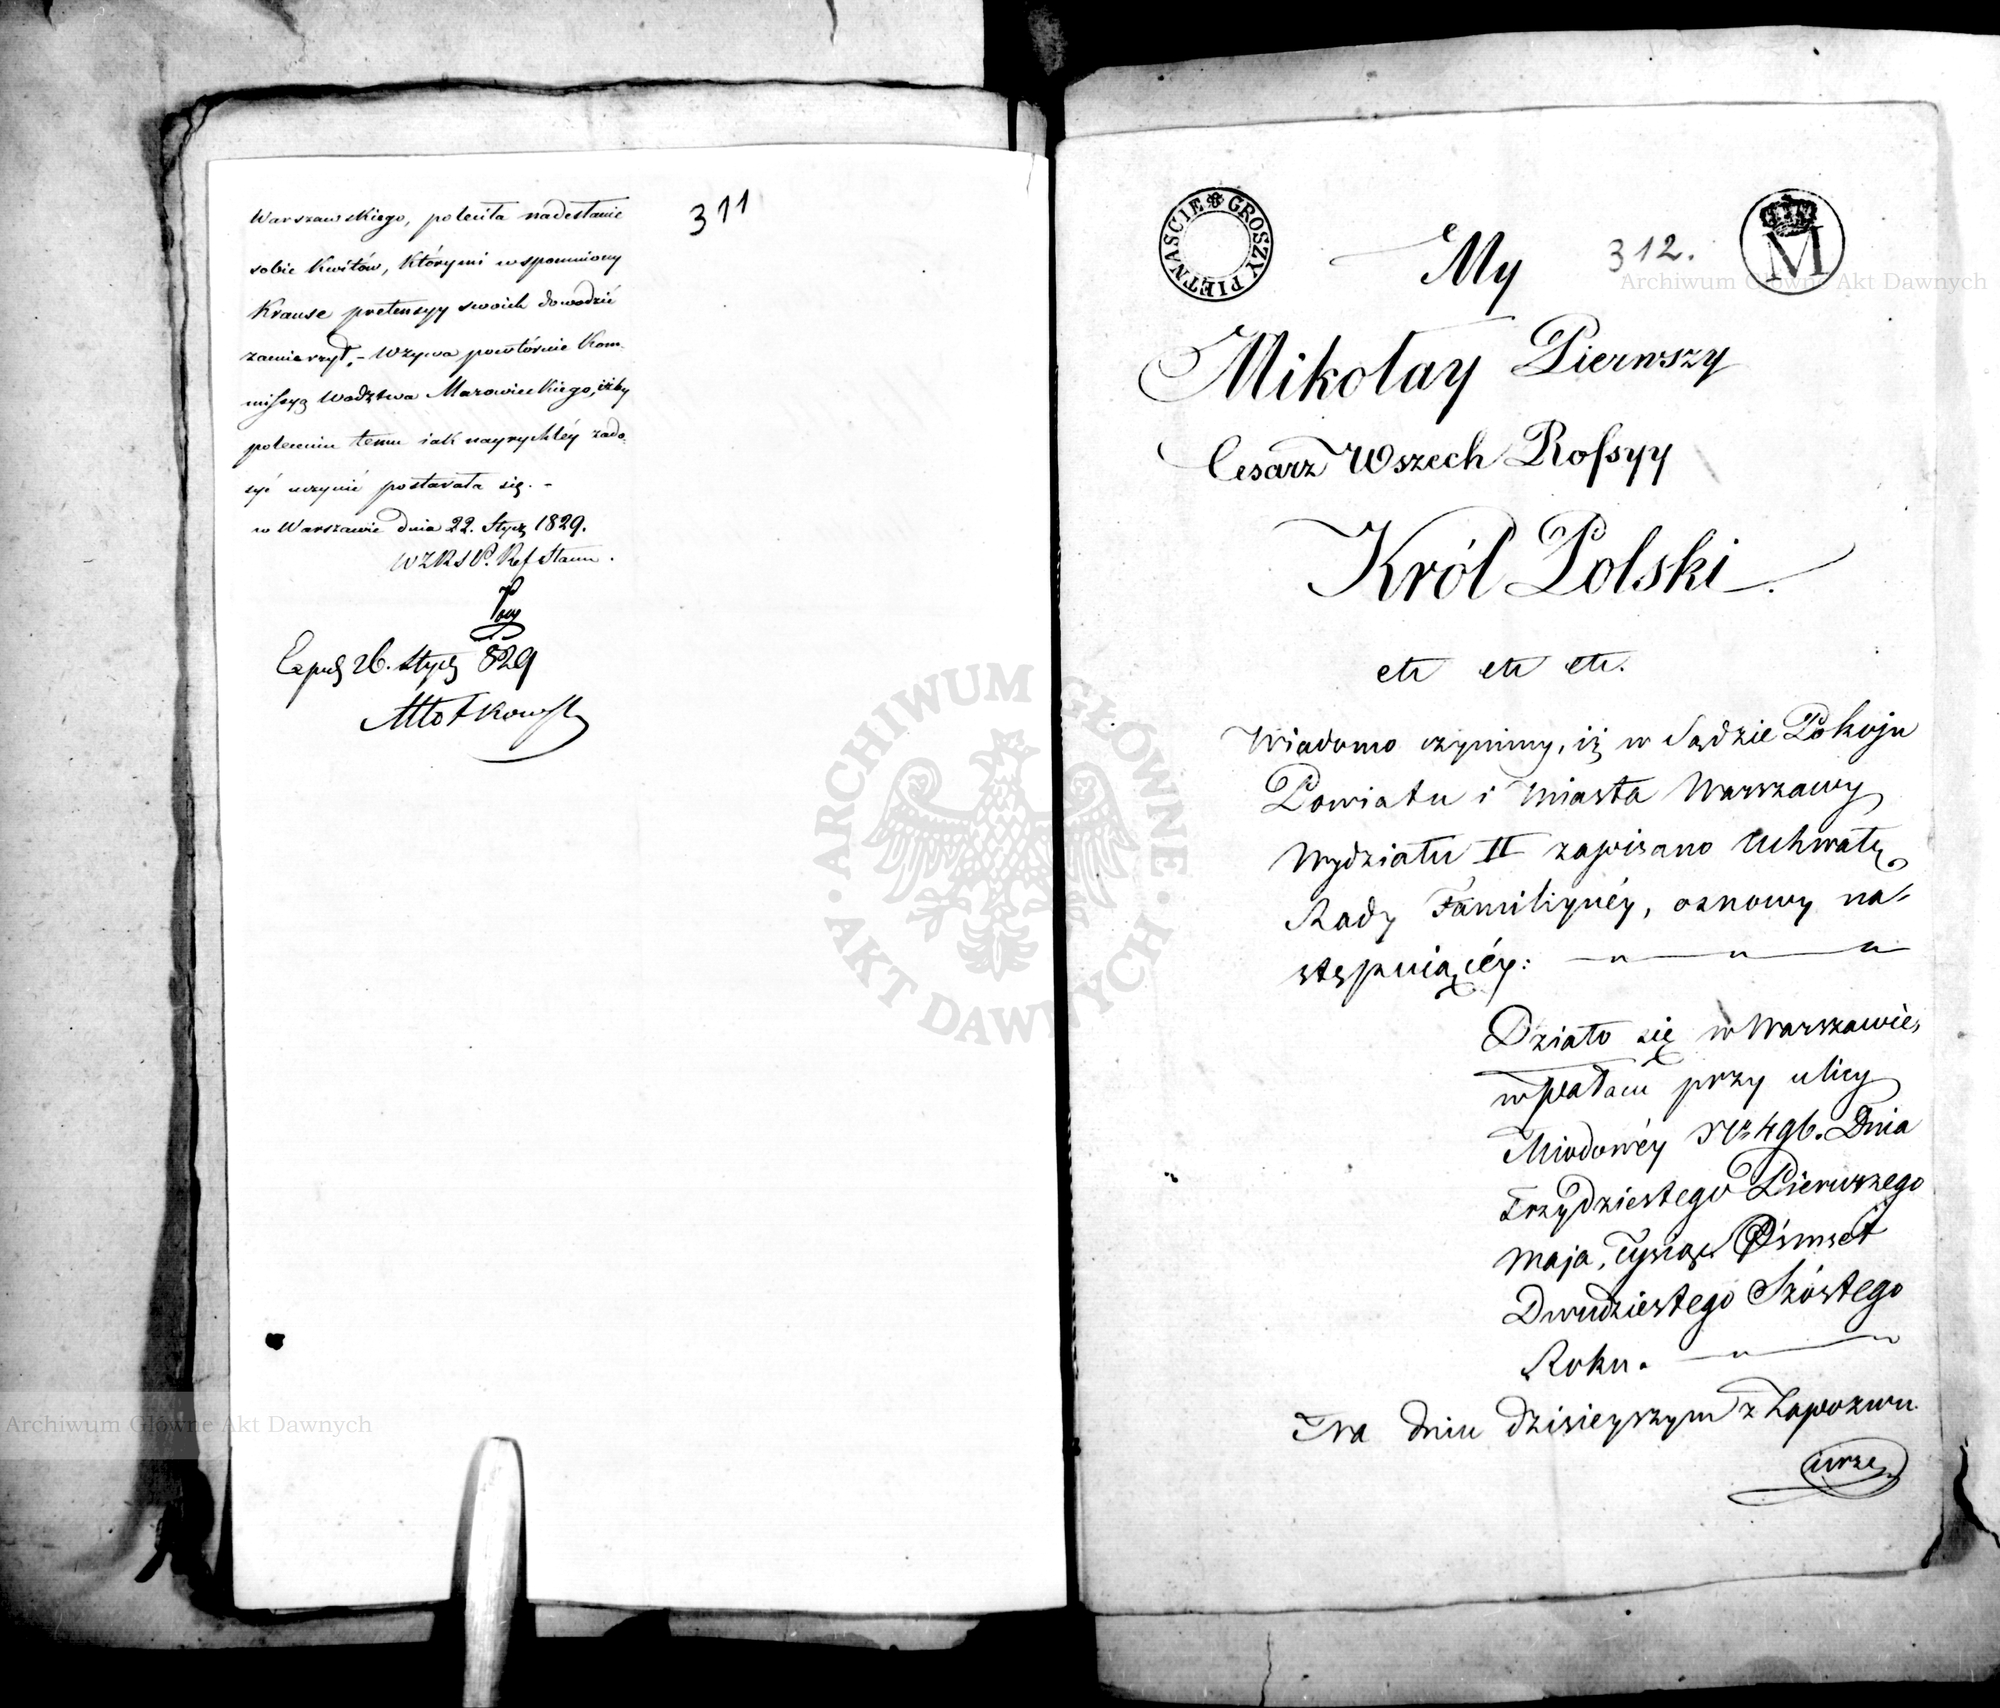 311
Warszawskiego, poleciła nadesłanie
sobie Kwitów, któremi wspomniony
Krause pretensyy swoich dowodzić
zamierzył, – Wzywa powtórnie Kom-
missyą Wodztwa Mazowieckiego, iżby
poleceniu temu iak nayrychléy zado-
syć uczynić postarała się. –
w Warszawie dnia 22. Stycz 1829.
WZRSP. Ref Stanu.
26. Stycz 829
GROSZY PIĘTNAŚCIE
M
312.
My
Mikołay Pierwszy
Cesarz Wszech Rossyy
Król Polski.
etc etc etc.
Wiadomo czynimy, iż w Sądzie Pokoju
Powiatu i Miasta Warszawy
Wydziału II zapisano Uchwałę
Rady Familiynéy, osnowy na-
stępuiącéy:
Działo się w Warszawie,
w pałacu przy ulicy
Miodowéy Nr 496. Dnia
Trzydziestego Pierwszego
Maja, Tysiąc Ośmset
Dwudziestego Szóstego
Roku.
Na dniu dzisieyszym z Zapozwu
ARCHIWUM GŁÓWNE
AKT DAWNYCH
Archiwum Główne Akt Dawnych
Archiwum Główne Akt Dawnych